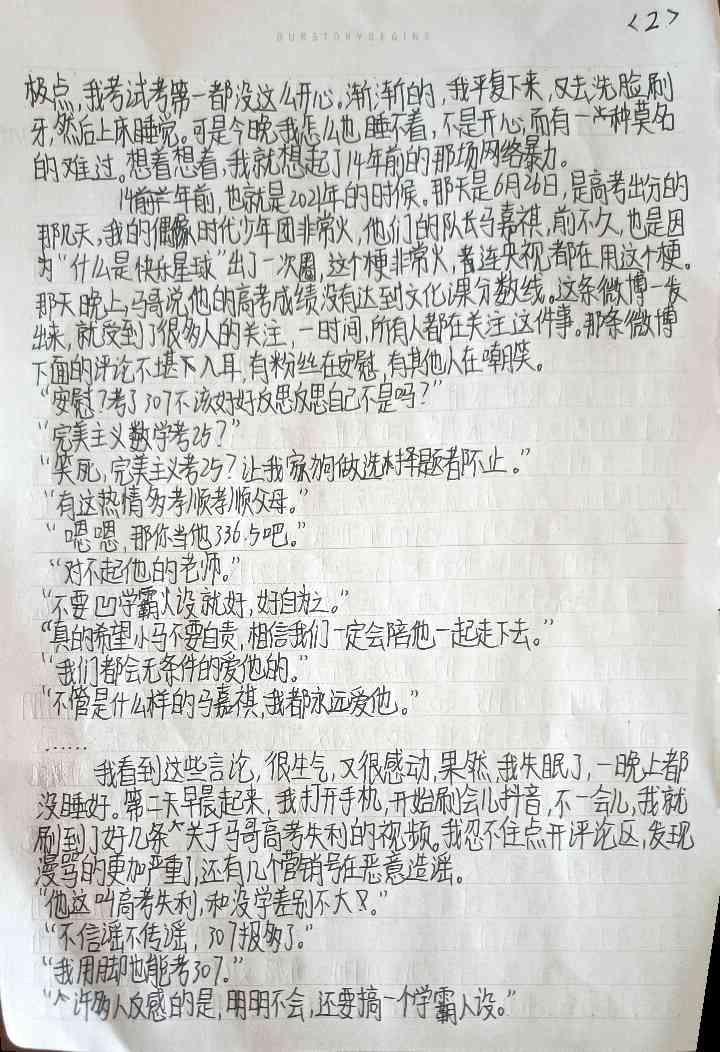 <2>
OURSTORYBEGINS
极点,我考试考第一都没这么开心。渐渐的,我平复下来,又去洗脸刷
牙,然后上床睡觉。可是今晚我怎么也睡不着,不是开心,而有一种莫名
的难过。想着想着,我就想起了14年前的那场网络暴力。
14年前,也就是2021年的时候。那天是6月26日,是高考出分的
那几天,我的偶像时代少年团非常火,他们的队长马嘉祺,前不久,也是因
为“什么是快乐星球”出了一次圈,这个梗非常火,连央视都在用这个梗。
那天晚上,马哥说他的高考成绩没有达到文化课分数线。这条微博一发
出来,就受到了很多人的关注,一时间,所有人都在关注这件事。那条微博
下面的评论不堪入耳,有粉丝在安慰,有其他人在嘲笑。
“安慰?考了307不该好好反思反思自己不是吗?”
“完美主义数学考25?”
“笑死,完美主义考25?让我家狗做选择题都不止。”
“有这热情多孝顺孝顺父母。”
“嗯嗯,那你当他336.5吧。”
“对不起他的老师。”
“不要凹学霸人设就好,好自为之。”
“真的希望小马不要自责,相信我们一定会陪他一起走下去。”
“我们都会无条件的爱他的。”
“不管是什么样的马嘉祺,我都永远爱他。”
……
我看到这些言论,很生气,又很感动,果然,我失眠了,一晚上都
没睡好。第二天早晨起来,我打开手机,开始刷会儿抖音,不一会儿,我就
刷到了好几条关于马哥高考失利的视频。我忍不住点开评论区,发现
漫骂的更加严重了,还有几个营销号在恶意造谣。
“他这叫高考失利,和没学差别不大?。”
“不信谣不传谣,307报多了。”
“我用脚也能考307。”
“许多人反感的是,明明不会,还要搞一个学霸人设。”